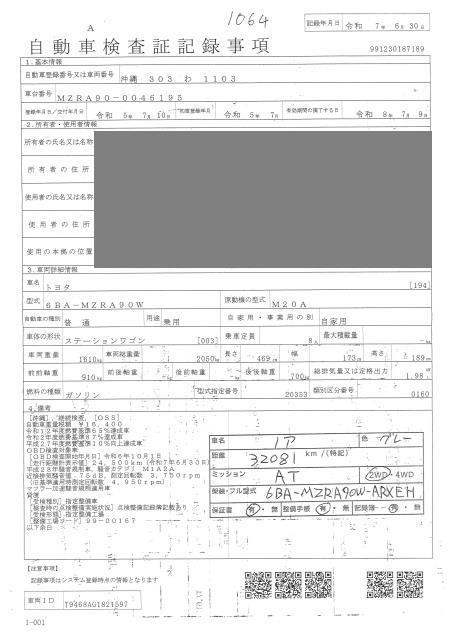 1064
A
記録年月日 令和 7年 6月30日
自動車検査証記録事項
991230187189
1.基本情報
自動車登録番号又は車両番号 沖縄 303 わ 1103
車台番号 MZRA90-0046195
登録年月日/交付年月日 令和 5年 7月10日 初度登録年月 令和 5年 7月 有効期間の満了する日 令和 8年 7月 9日
2.所有者・使用者情報
所有者の氏名又は名称
所有者の住所
使用者の氏名又は名称
使用者の住所
使用の本拠の位置
3.車両詳細情報
車名 トヨタ [194]
型式 6BA-MZRA90W 原動機の型式 M20A
自動車の種別 普通 用途 乗用 自家用・事業用の別 自家用
車体の形状 ステーションワゴン [003] 乗車定員 8人 最大積載量 -kg
車両重量 1610kg 車両総重量 2050kg 長さ 469cm 幅 173cm 高さ 189cm
前前軸重 910kg 前後軸重 -kg 後前軸重 -kg 後後軸重 700kg 総排気量又は定格出力 1.98
燃料の種類 ガソリン 型式指定番号 20353 類別区分番号 0160
4.備考
[沖縄],継続検査,[OSS]
自動車重量税額 ¥16,400
令和12年度燃費基準85%達成車
令和2年度燃費基準87%達成車
平成27年度燃費基準10%向上達成車
OBD検査対象車
[OBD検査開始年月日] 令和6年10月1日
[走行距離計表示値] 24,500km (令和7年6月30日)
平成28年騒音規制車,騒音カテゴリ M1A2A
近接排気騒音値 75dB,測定回転数 3,750rpm
(旧基準適用時測定回転数 4,950rpm)
マフラー加速騒音規制適用車
[受検種別] 指定整備車
[検査時の点検整備実施状況] 点検整備記録簿記載あり
[受検形態] 指定整備工場
[整備工場コード] 99-00167
以下余白
車名 ノア 色 グレー
距離 32081 km/(特記)
ミッション AT 2WD・4WD
架装・フル型式 6BA-MZRA90W-ARXEH
保証書 有・無 整備手帳 有・無 記録簿 有・無
[注意事項]
記録事項はシステム登録時点の情報となります
車両ID T9468AG1821597
1-001